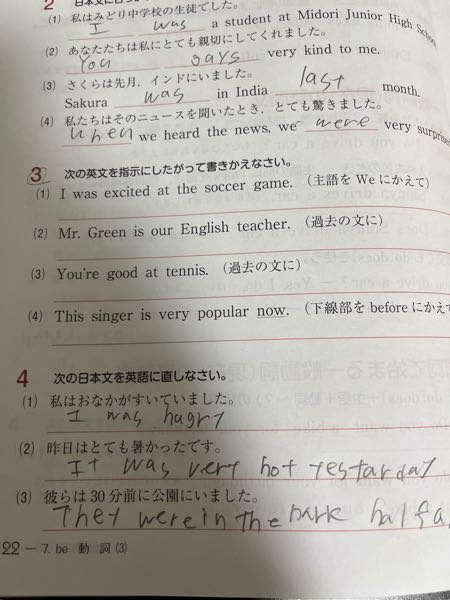 2 日本文に合う
(1) 私はみどり中学校の生徒でした。
I was a student at Midori Junior High School
(2) あなたたちは私にとても親切にしてくれました。
You gays very kind to me.
(3) さくらは先月，インドにいました。
Sakura was in India last month.
(4) 私たちはそのニュースを聞いたとき，とても驚きました。
when we heard the news, we were very surprise
3 次の英文を指示にしたがって書きかえなさい。
(1) I was excited at the soccer game. (主語を We にかえて)
(2) Mr. Green is our English teacher. (過去の文に)
(3) You're good at tennis. (過去の文に)
(4) This singer is very popular now. (下線部を before にかえ
4 次の日本文を英語に直しなさい。
(1) 私はおなかがすいていました。
I was hugry
(2) 昨日はとても暑かったです。
It was very hot yestarday
(3) 彼らは30分前に公園にいました。
They were in the park half a
22 — 7. be 動 詞 (3)